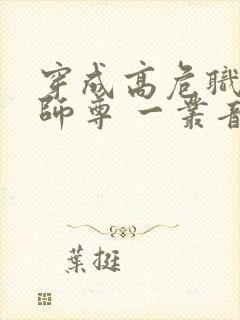 穿成高危職
師尊 一叢音
葉挺